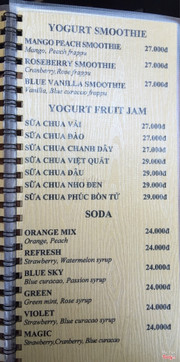 YOGURT SMOOTHIE
MANGO PEACH SMOOTHIE 27.000đ
Mango, Peach frappu
ROSEBERRY SMOOTHIE 27.000đ
Cranberry, Rose frappu
BLUE VANILLA SMOOTHIE 27.000đ
Vanilla, Blue curacao frappu
YOGURT FRUIT JAM
SỮA CHUA VẢI 27.000đ
SỮA CHUA ĐÀO 27.000đ
SỮA CHUA CHANH DÂY 27.000đ
SỮA CHUA VIỆT QUẤT 29.000đ
SỮA CHUA DÂU 29.000đ
SỮA CHUA NHO ĐEN 29.000đ
SỮA CHUA PHÚC BỒN TỬ 29.000đ
SODA
ORANGE MIX 24.000đ
Orange, Peach
REFRESH 24.000đ
Strawberry, Watermelon syrup
BLUE SKY 24.000đ
Blue curacao, Passion syrup
GREEN 24.000đ
Green mint, Rose syrup
VIOLET 24.000đ
Strawberry, Blue curacao syrup
MAGIC 24.000đ
Strawberry,Cranberry, Blue curacao